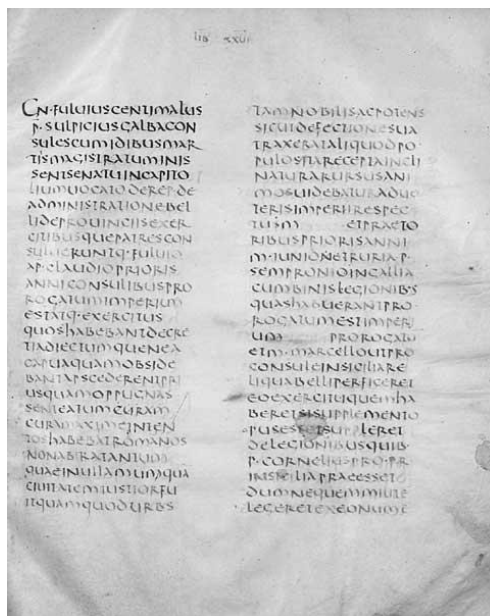 LIB XXVI
CN·FULUIUSCENTIMALUS
P·SULPICIUSGALBACON
SULESCUMIDIBUSMAR
TISMAGISTRATUMINIS
SENTSENATUINCAPITO
LIUMUOCATODEREPDE
ADMINISTRATIONEBEL
LIDEPROUINCIISEXER
CITIBUSQUEPATRESCON
SULUERUNTQ·FULUIO
AP·CLAUDIOPRIORIS
ANNICONSULIBUSPRO
ROGATUMIMPERIUM
ESTATQ·EXERCITUS
QUOSHABEBANTDECRE
TIADIECTUMQUENEA
CAPUAQUAMOBSIDE
BANTABSCEDERENTPRI
USQUAMEXPUGNAS
SENTEATUMCURAM
CURAMAXIMEINTEN
TOSHABEBATROMANOS
NONABIRATANTUM
QUAEINULLAMUMQUA
CIUITATEMIUSTIORFU
ITQUAMQUODURBS
TAMNOBILISACPOTENS
SICUIDEFECTIONESUA
TRAXERATALIQUODPO
PULOSITARECEPTAINCLI
NATURARURSUSANI
MOSUIDEBATURADUE
TERISIMPERIIRESPEC
TUM ETPRAETO
RIBUSPRIORISANNI
M·IUNIOETRURIA P·
SEMPRONIOINGALLIA
CUMBINISLEGIONIBS
QUASHABUERANTPRO
ROGATUMESTIMPERI
UM PROROGATU
ETM·MARCELLOUTPRO
CONSULEINSICILIARE
LIQUABELLIPERFICERET
EOEXERCITUQUEMHA
BERETSISUPPLEMENTO
PUSESSETSUPPLERET
DELEGIONIBUSQUIB·
P·CORNELIUSPRO·PR
INSICILIAPRAEESSET
DUMNEQUEMMILITE
LEGERETEXEONUME